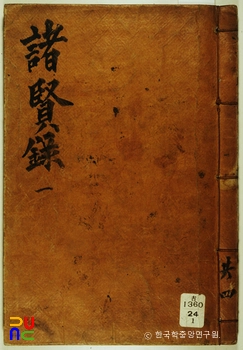 諸賢錄
一
共四
1360
24
1
© 한국학중앙연구원